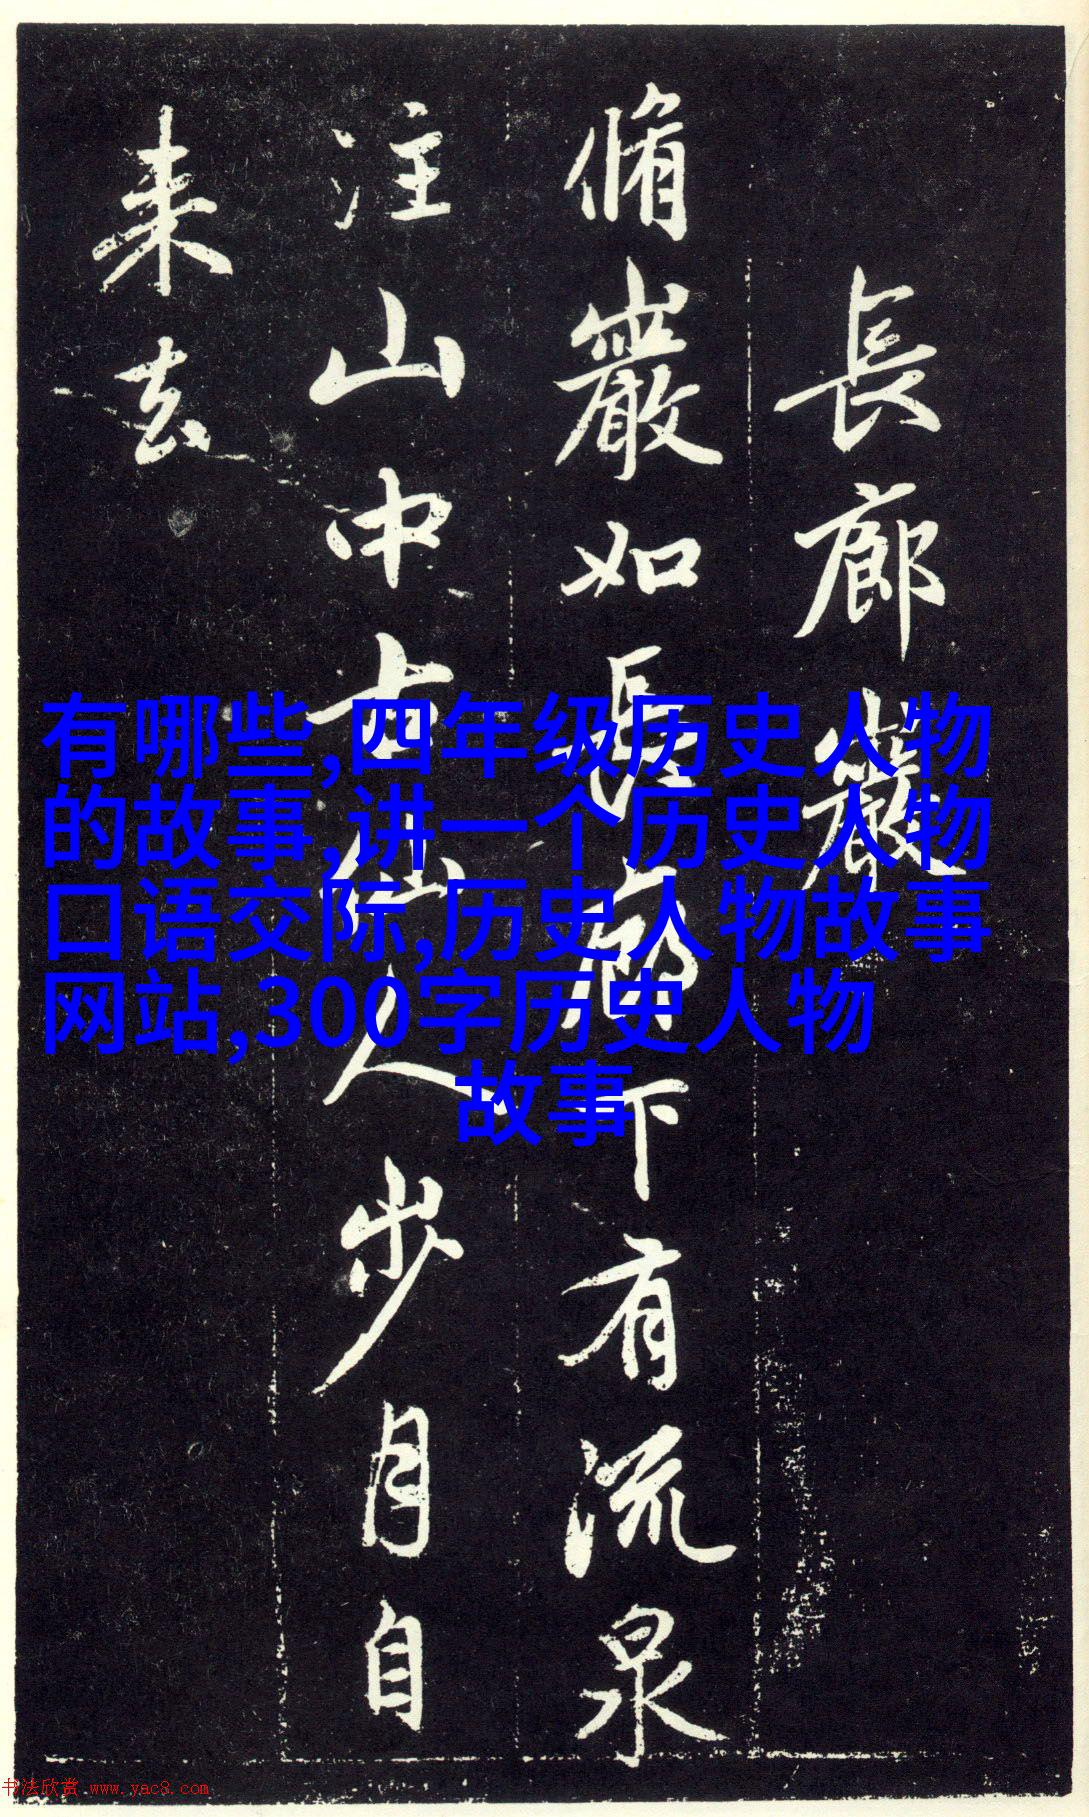 長廊巖
脩巖如長廊下有流泉
注山中古仙人步月自
来去
有哪些,四年级历史人物
的故事,讲一个历史人物
口语交际,历史人物故事
网站,300字历史人物
故事
书法欣赏 www.yac8.com